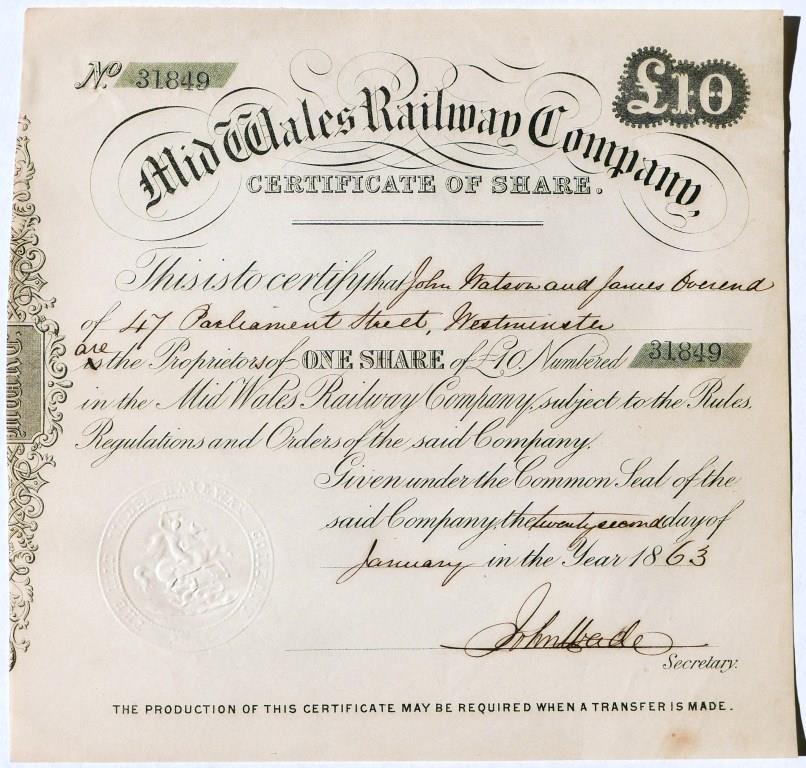 No. 31849
£10
Mid Wales Railway Company,
CERTIFICATE OF SHARE.
This is to certify that John Watson and James Overend
of 47 Parliament Street, Westminster
are
is the Proprietors of ONE SHARE of £10. Numbered 31849
in the Mid Wales Railway Company, subject to the Rules,
Regulations and Orders of the said Company.
Given under the Common Seal of the
said Company, the twenty second day of
January in the Year 1863
John Wade
Secretary.
THE PRODUCTION OF THIS CERTIFICATE MAY BE REQUIRED WHEN A TRANSFER IS MADE.